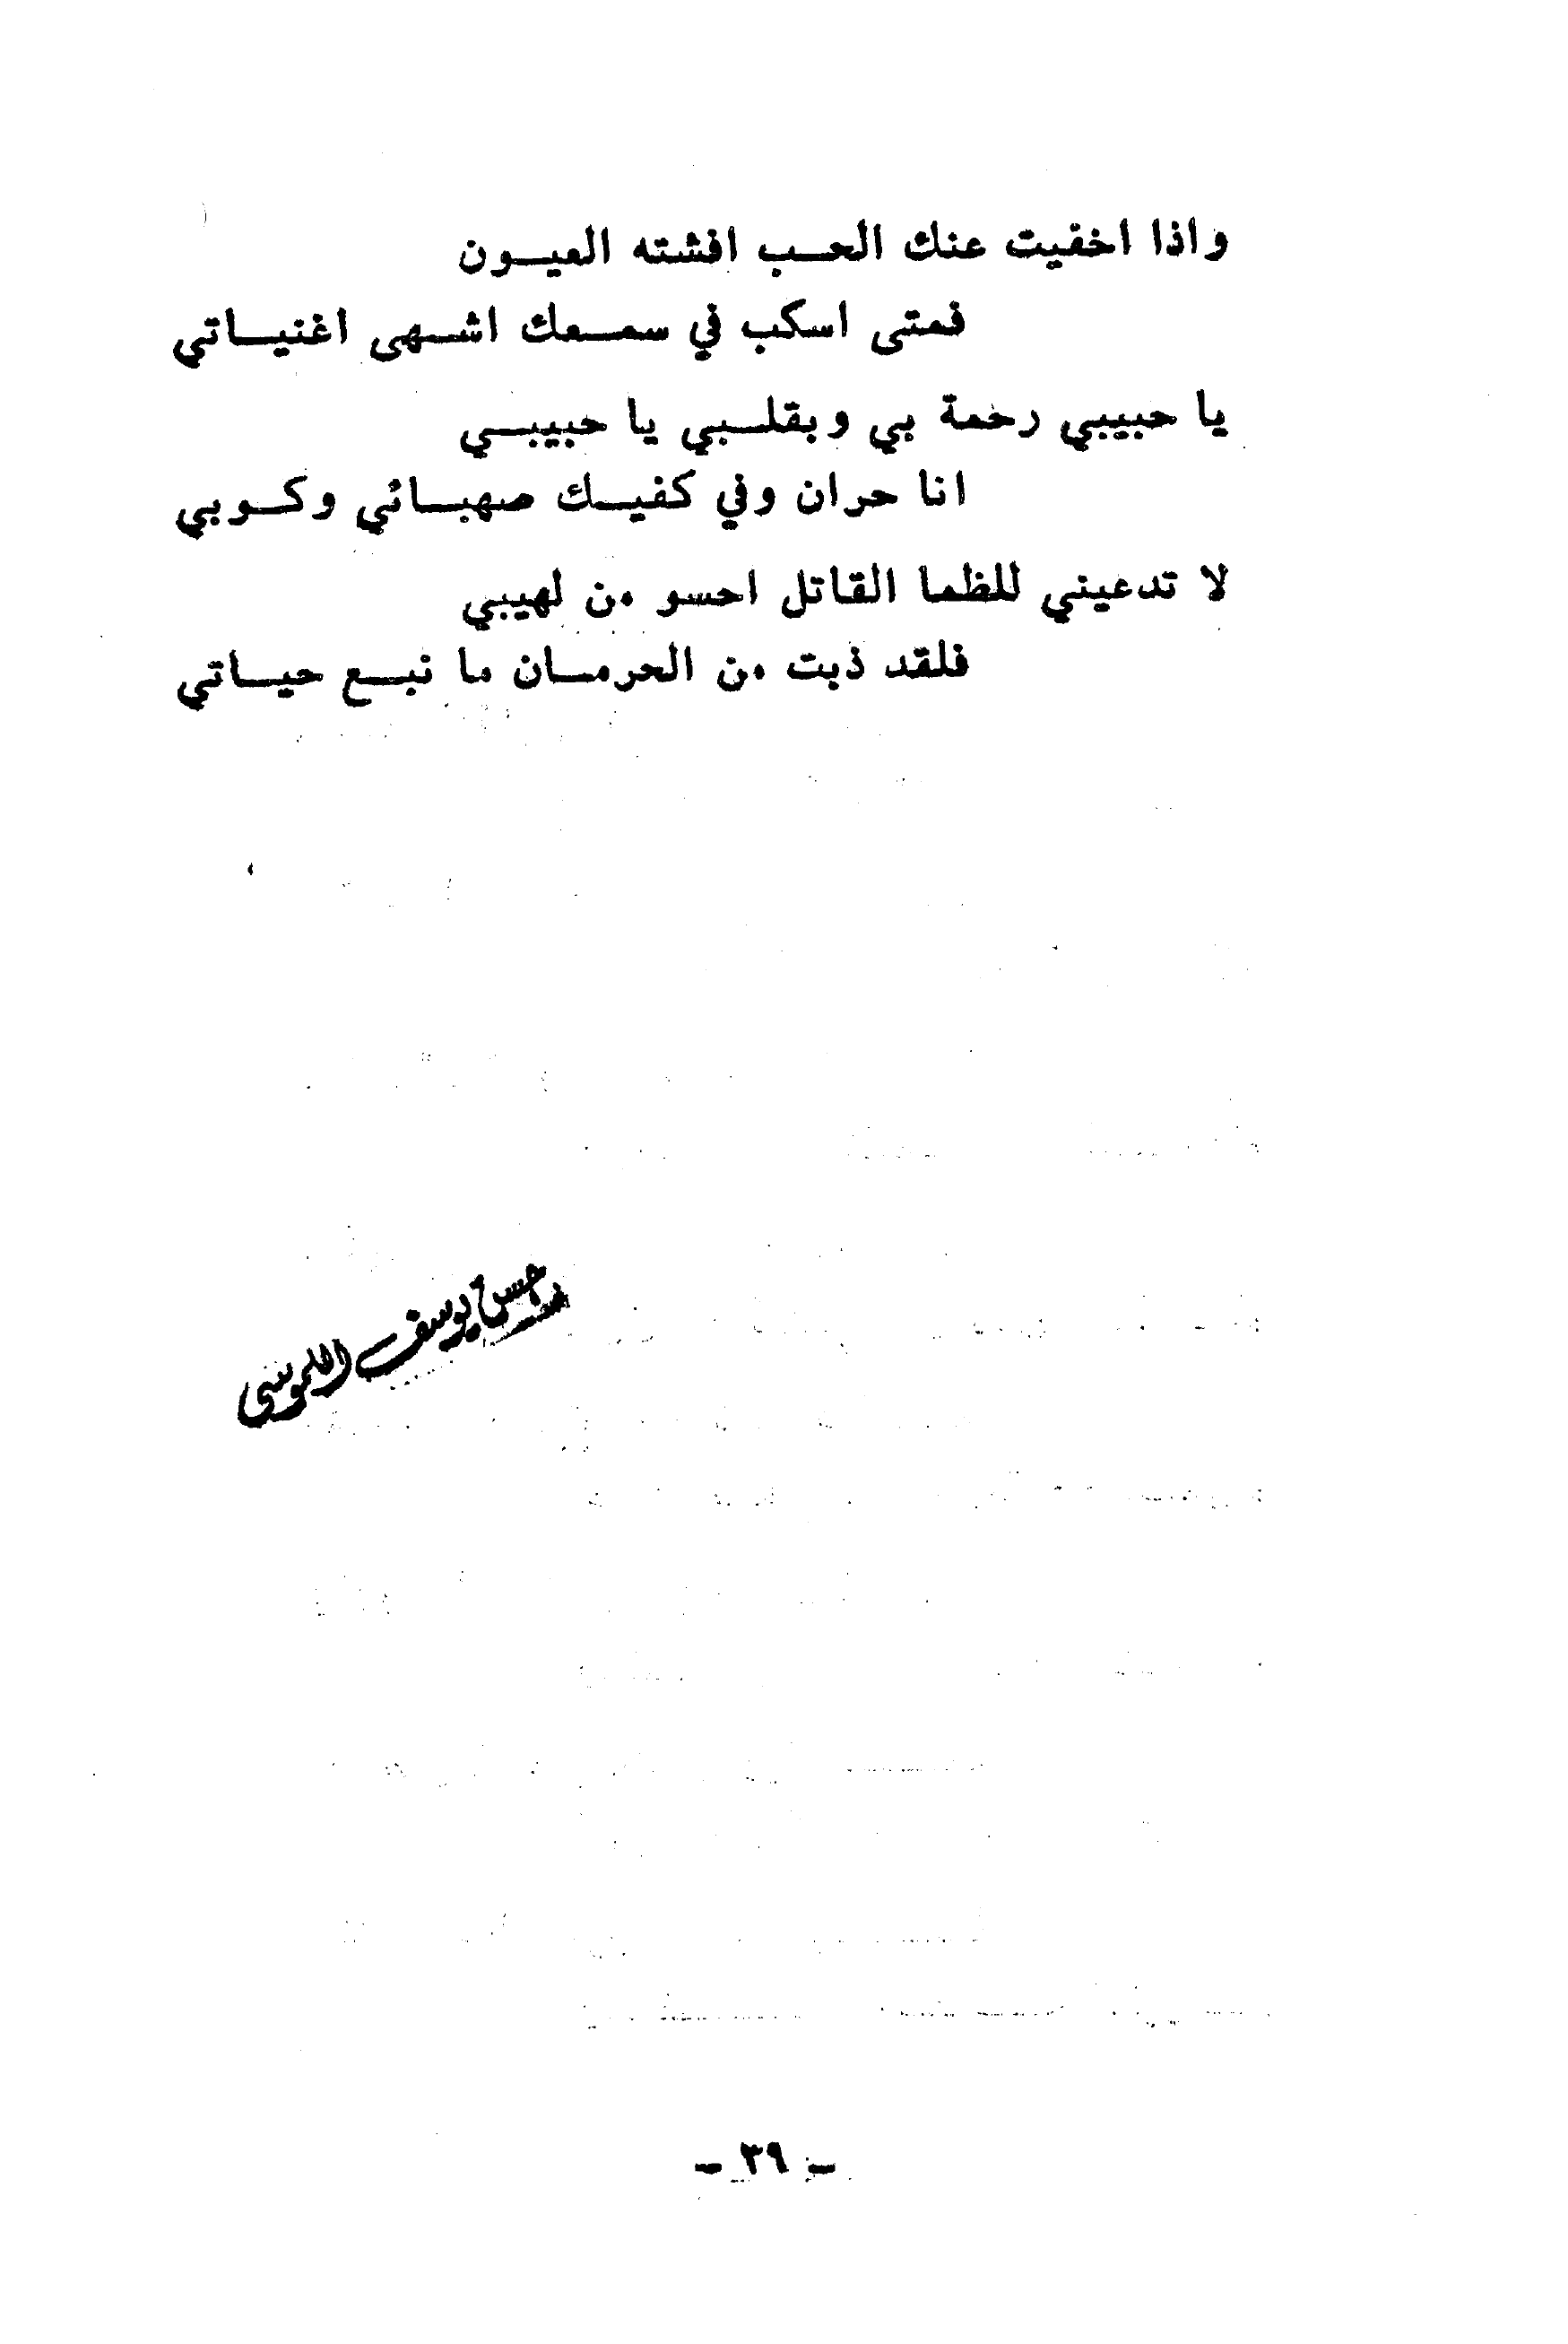 واذا اخفيت عنك الحب افشته العيون
فمتى اسكب في سمعك اشهى اغنياتي
يا حبيبي رحمة بي وبقلبي يا حبيبي
انا حران وفي كفيك صهبائي وكوبي
لا تدعيني للظما القاتل احسو من لهيبي
فلقد ذبت من الحرمان ما نبع حياتي
حسن يوسف
- ٣٩ -